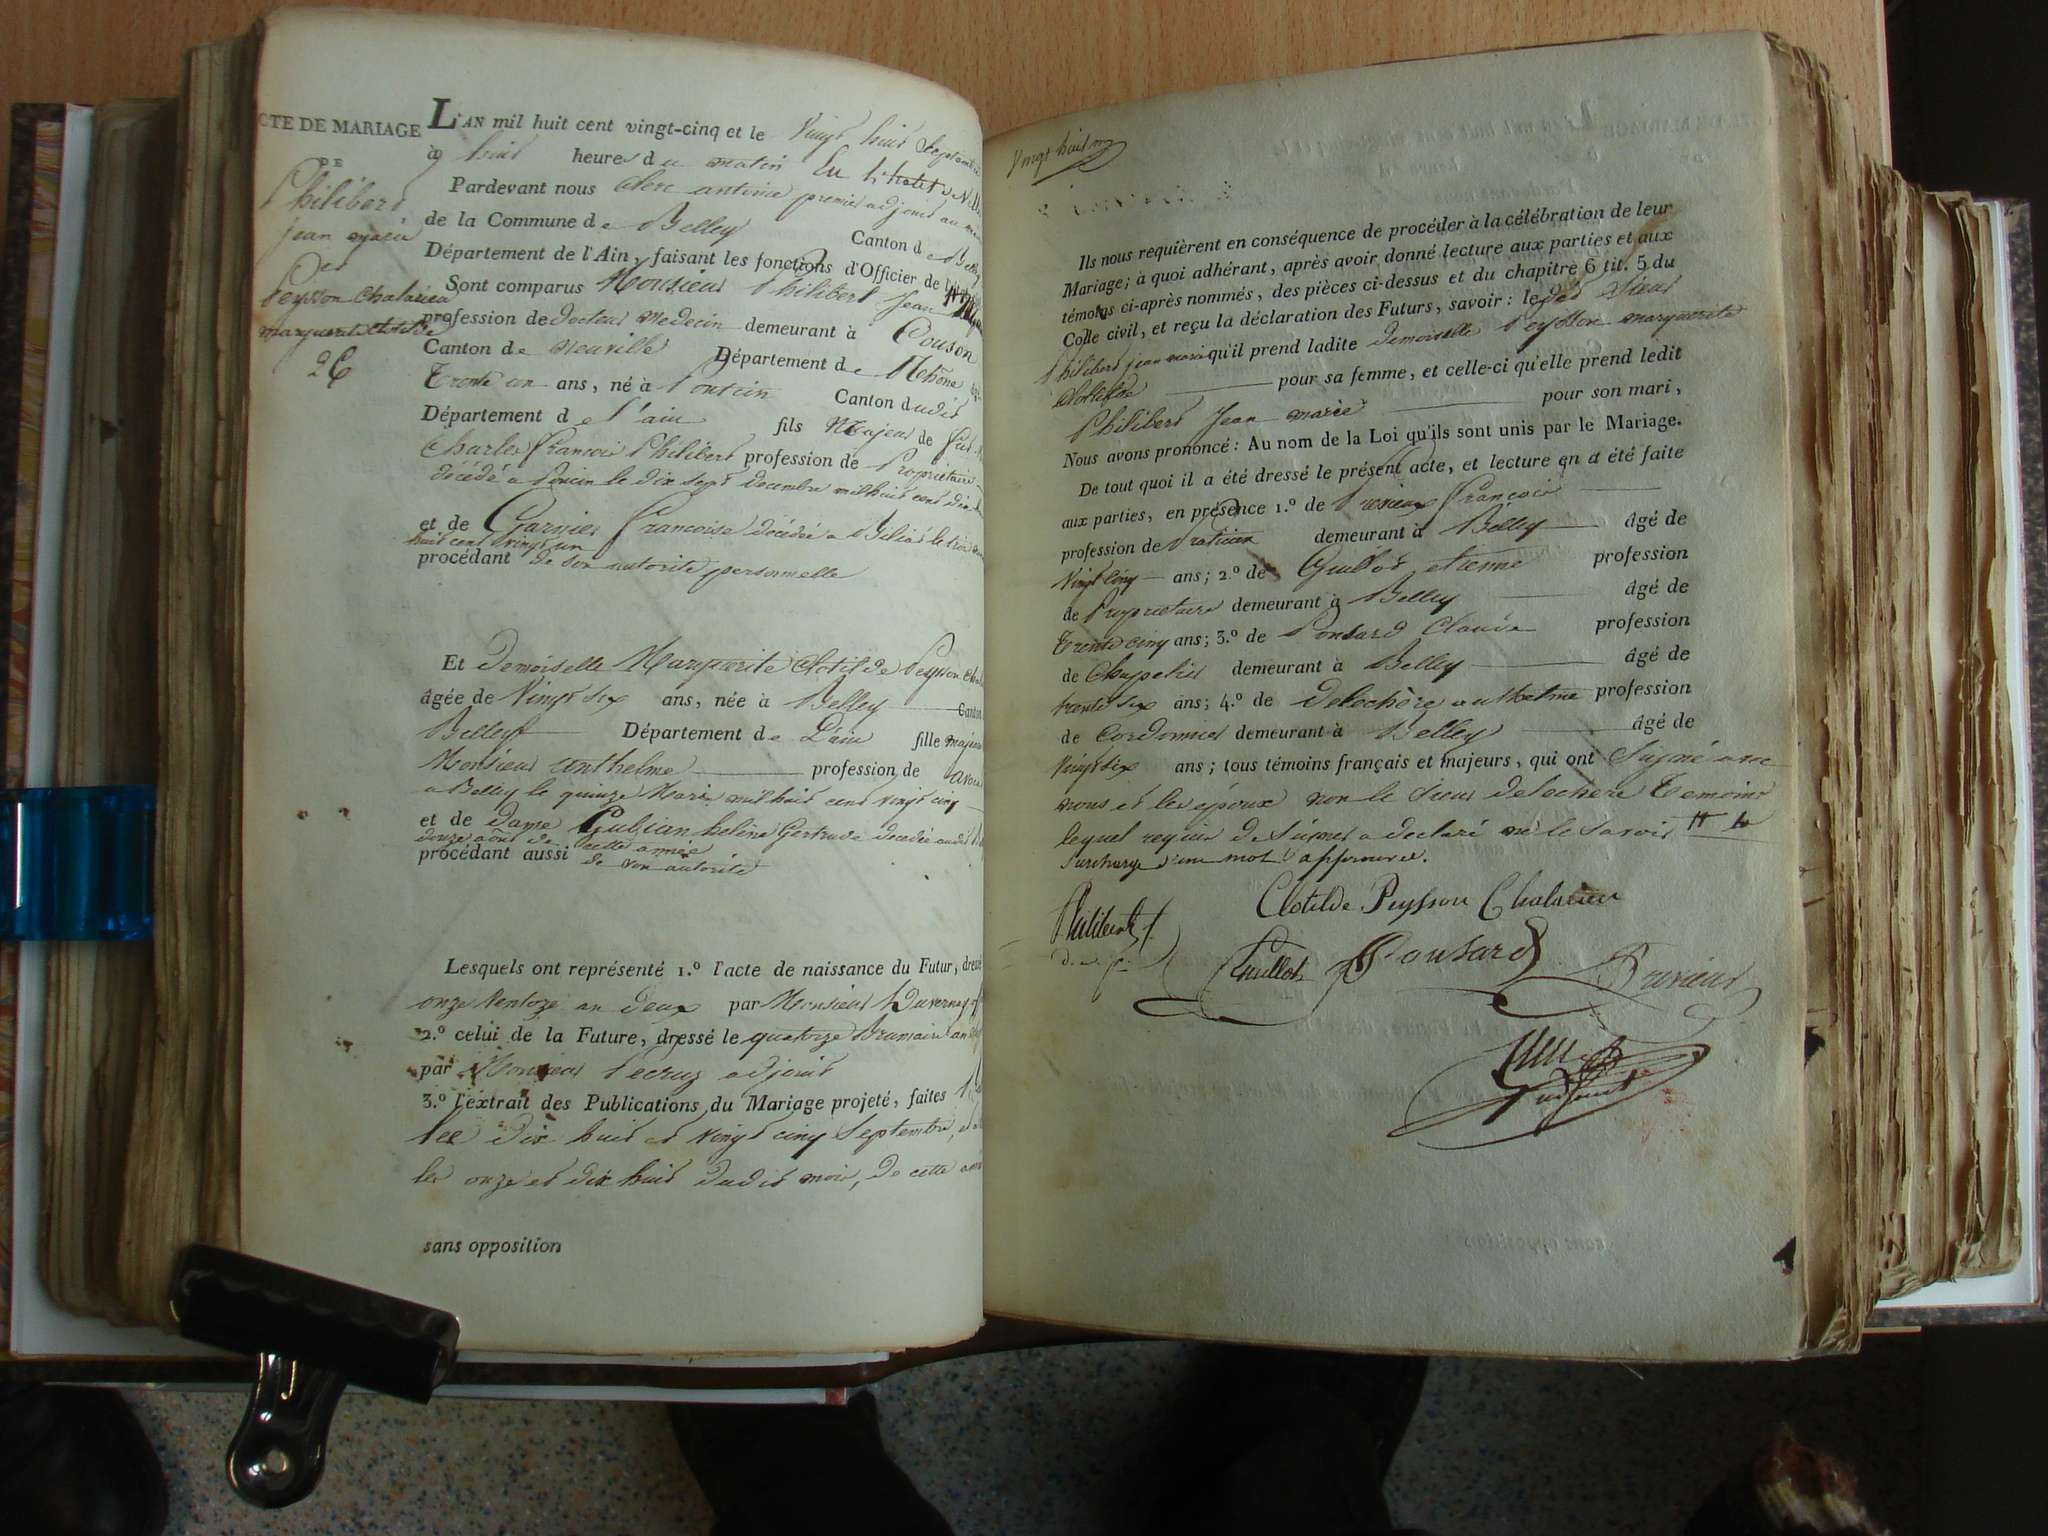 ACTE DE MARIAGE
DE
Philibert
jean marie
Et
Peysson Chalarieu
marguerite clotilde
L'AN mil huit cent vingt-cinq et le Vingt huit Septembre
à huit heures du matin En l'hotel de
Pardevant nous Clerc antoine premier adjoint au
de la Commune de Belley Canton de Belley
Département de l'Ain, faisant les fonctions d'Officier de
Sont comparus Monsieur Philibert Jean
profession de Docteur Medecin demeurant à Couson
Canton de Neuville Département de Rhône
Trente un ans, né à Poncin Canton dudit
Département de l'ain fils Majeur de
Charles François Philibert profession de Propriétaire
décédé a Poncin le dix sept decembre mil huit cent
et de Garnier Françoise décédée a le trois
huit cent vingt un
procédant de son autorité personnelle
Et Demoiselle Marguerite Clotilde Peysson
âgée de Vingt six ans, née à Belley Canton
Belley Département de L'ain fille majeure
Monsieur anthelme profession de
a Belley le quinze Mars mil huit cent vingt cinq
et de Dame Gubian helène Gertrude decedée
douze août de cette année
procédant aussi de son autorité
Lesquels ont représenté 1.º l'acte de naissance du Futur, dressé
onze Ventoze an deux par Monsieur Duvernay
2.º celui de la Future, dressé le quatorze Brumaire an
par Monsieur Pecruz adjoint
3.º l'extrait des Publications du Mariage projeté, faites
les Dix huit et vingt cinq Septembre,
les onze et dix huit dudit mois, de cette
sans opposition
Vingt huit
Ils nous requièrent en conséquence de procéder à la célébration de leur
Mariage; à quoi adhérant, après avoir donné lecture aux parties et aux
témoins ci-après nommés, des pièces ci-dessus et du chapitre 6 tit. 5 du
Code civil, et reçu la déclaration des Futurs, savoir: le dit Sieur
Philibert jean marie qu'il prend ladite demoiselle Peysson marguerite
Clotilde pour sa femme, et celle-ci qu'elle prend ledit
Philibert Jean marie pour son mari,
Nous avons prononcé: Au nom de la Loi qu'ils sont unis par le Mariage.
De tout quoi il a été dressé le présent acte, et lecture en a été faite
aux parties, en présence 1.º de Prévieux François
profession de Praticien demeurant à Belley âgé de
Vingt Cinq ans; 2.º de Guillot etienne profession
de Propriétaire demeurant à Belley âgé de
Trente cinq ans; 3.º de Ponsard Claude profession
de Chapelier demeurant à Belley âgé de
trente six ans; 4.º de Delochère anthelme profession
de Cordonnier demeurant à Belley âgé de
Vingt six ans; tous témoins français et majeurs, qui ont Signé avec
nous et les époux non le Sieur Delochère Temoins
lequel requis de Signer a declaré ne le Savoir
Surcharge d'un mot approuvée.
Clotilde Peysson Chalarieu
Philibert
Guillot Ponsard